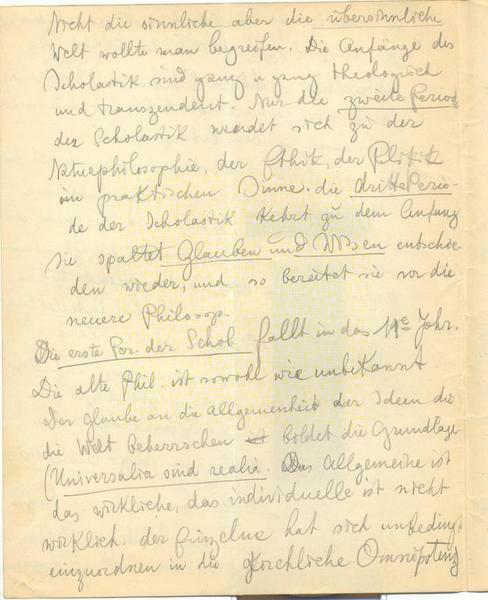 Nicht die sinnliche aber die übersinnliche
Welt wollte man begreifen. Die Anfänge der
Scholastik sind ganz u ganz theologisch
und transzendent. Nur die zweite Period
der Scholastik wendet sich zu der
Naturphilosophie, der Ethik, der Politik
im praktischen Sinne. die dritte Perio-
de der Scholastik kehrt zu dem Anfang
sie spaltet Glauben und Wissen entschie-
den wieder, und so bereitet sie vor die
neuere Philosop.
Die erste Per. der Schol. fällt in das 11e Jahr.
Die alte Phil. ist so wohl wie unbekannt.
Der Glaube an die Allgemeinheit der Ideen die
die Welt beherrschen bildet die Grundlage
(Universalia sind realia. Das Allgemeine ist
das wirkliche, das individuelle ist nicht
wirklich. der Einzelne hat sich unbeding
einzuordnen in die Kirchliche Omnipotenz